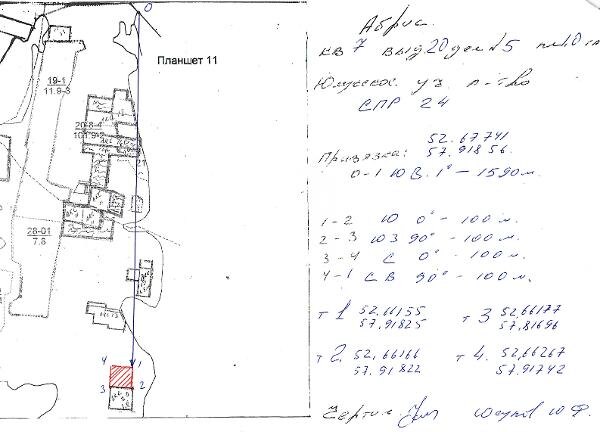 0
Планшет 11
19-1
11.9-3
20-8-4
28-01
7.8
4 1
3 2
Абрис.
кв 7 выд 20 дел 15 пл 1.0 га
уч. л-тво
СПР 24
Привязка: 52.67741
57.91856.
0-1 ЮВ. 1° - 1590 м.
1-2 Ю 0° - 100 м.
2-3 ЮЗ 90° - 100 м.
3-4 С 0° - 100 м.
4-1 СВ 90° - 100 м.
т 1 52,66155
57.91825
т 3 52,66177
57,81696
т 2. 52,66166
57.91822
т 4. 52,66267
57.91742
Чертил